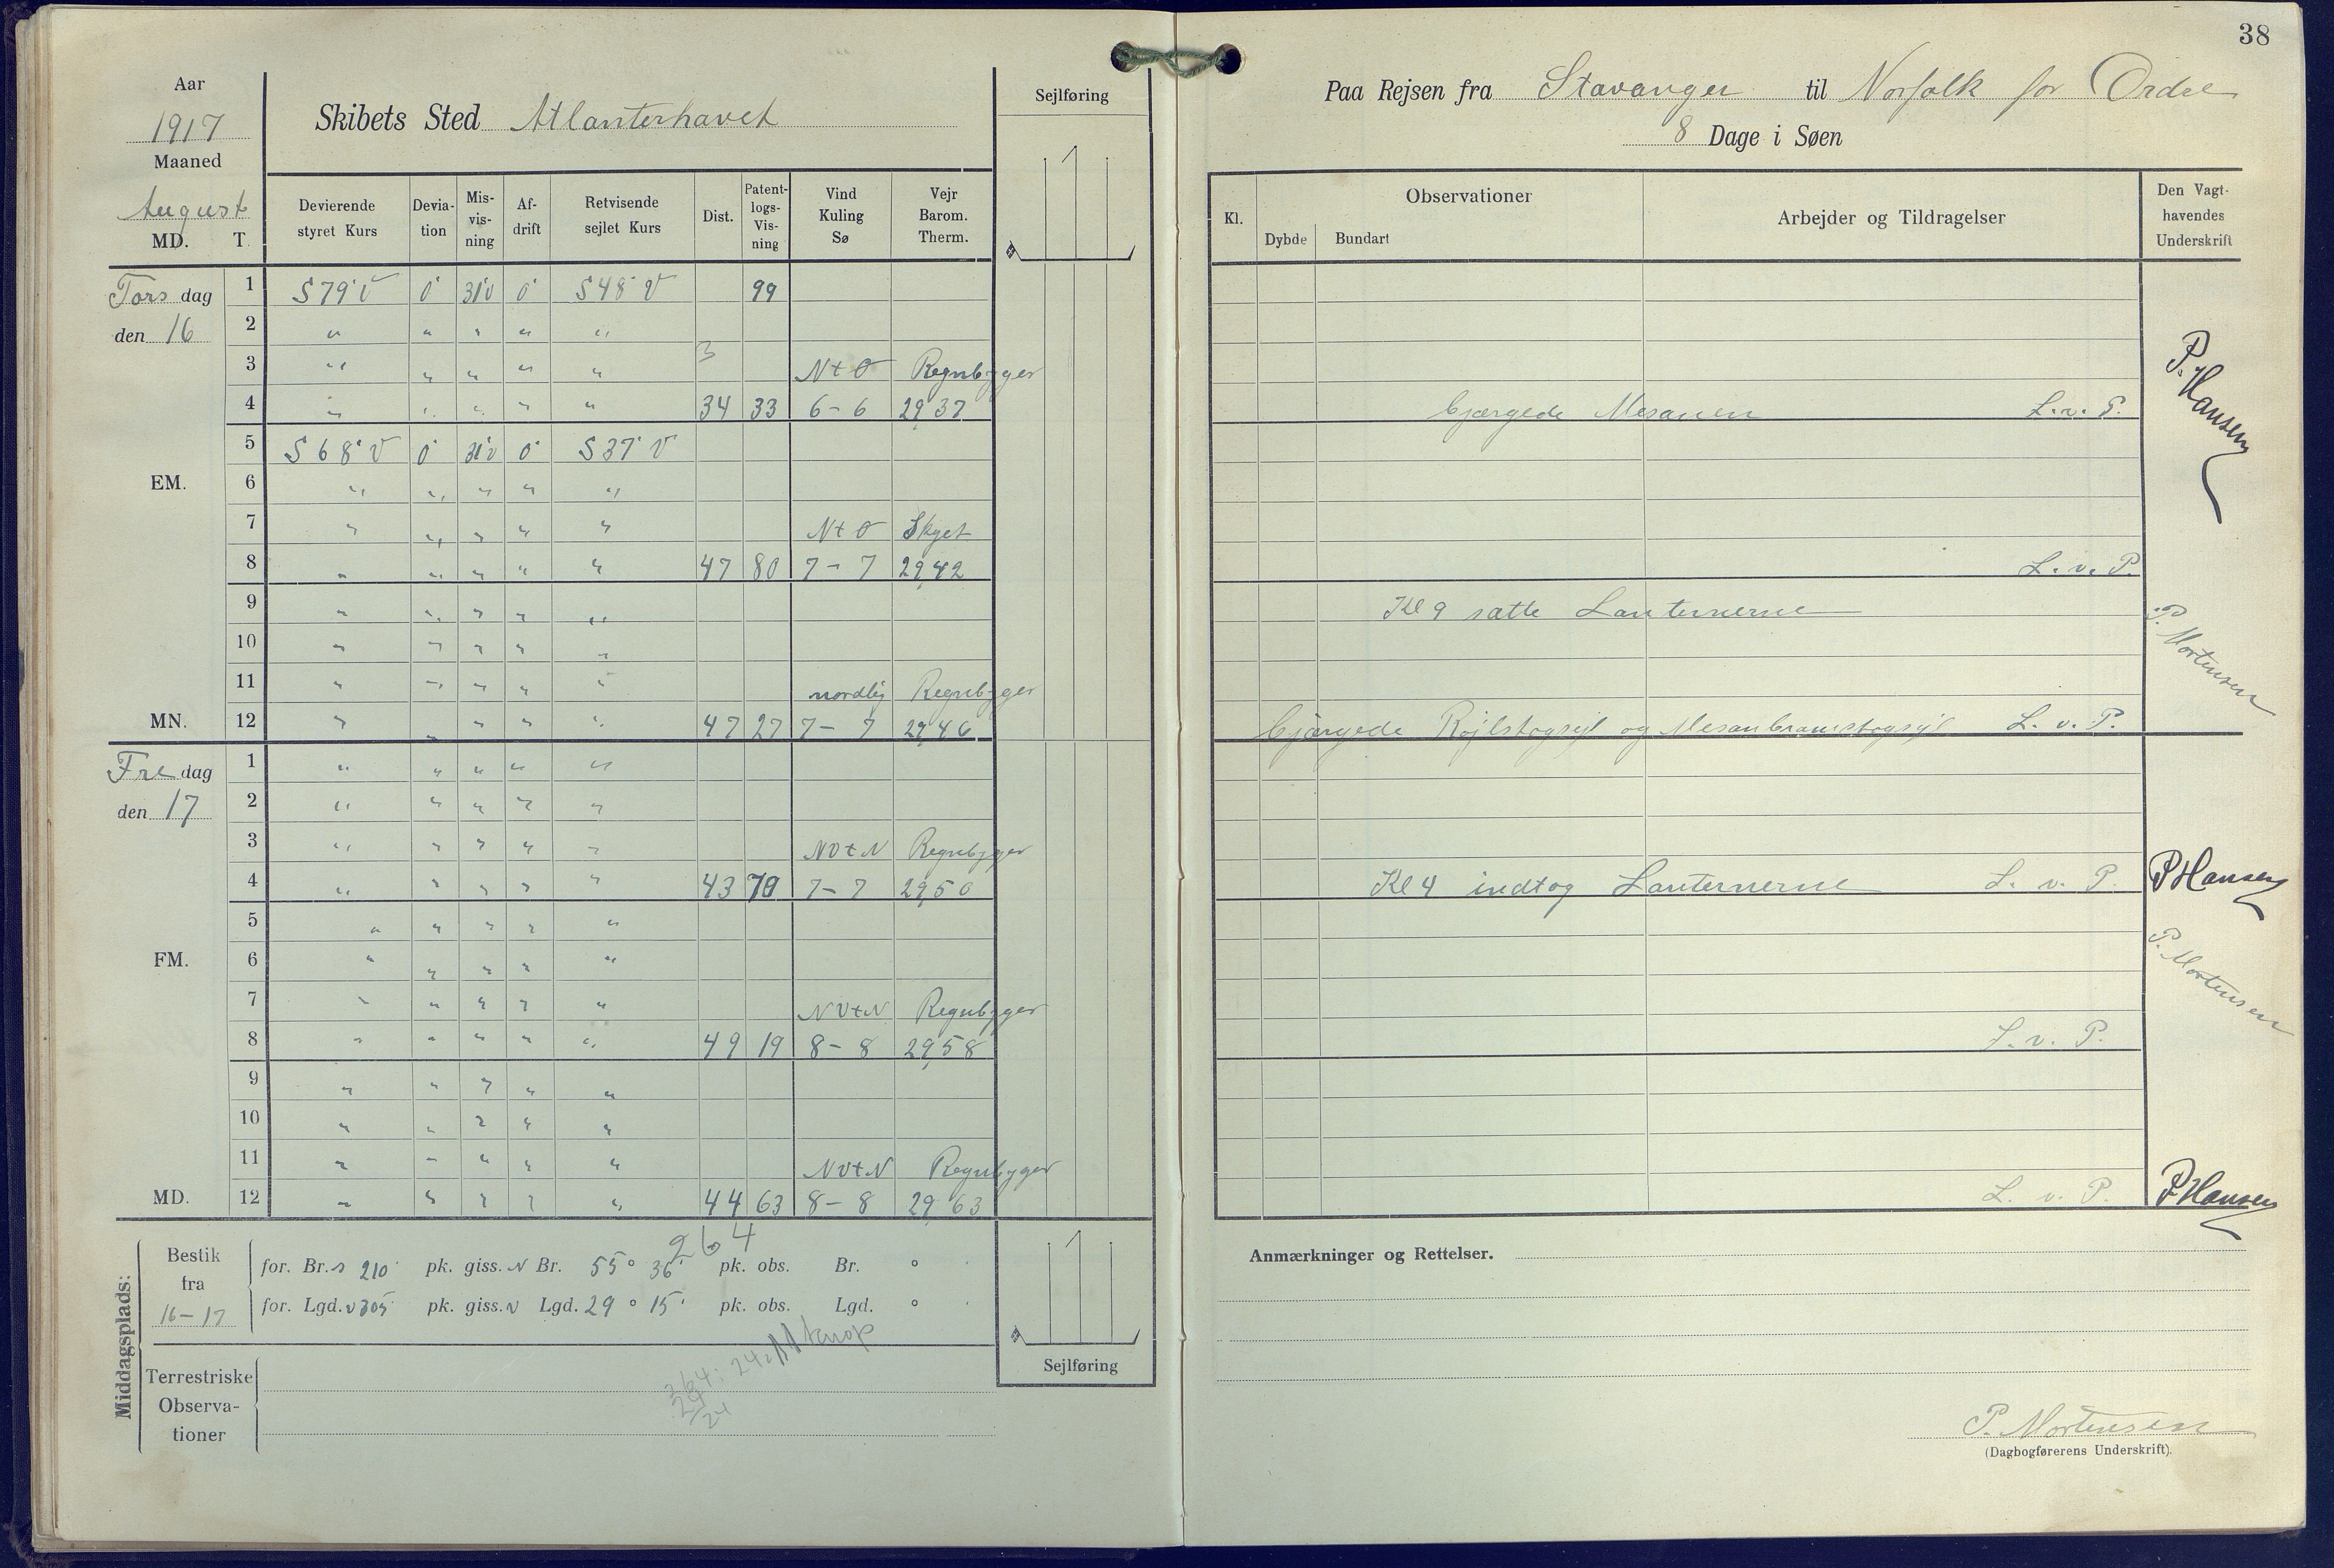 38
Aar
1917
Maaned
August
MD. T.
Skibets Sted Atlanterhavet
Sejlføring
Paa Rejsen fra Stavanger til Norfolk for Ordre
8 Dage i Søen
Devierende styret Kurs
Devia-tion
Mis-vis-ning
Af-drift
Retvisende sejlet Kurs
Dist.
Patent-logs-Vis-ning
Vind Kuling Sø
Vejr Barom. Therm.
Kl.
Observationer
Dybde Bundart
Arbejder og Tildragelser
Den Vagt-havendes Underskrift
Tors dag 1 S 79° V 0° 31°V 0° S 48° V 99
den 16 2 " " " " "
3 " " " " " 3 N t O Regnbyger
4 " " " " " 34 33 6 - 6 29,37 bjærgede Mesanen L. v. P. P. Hansen
5 S 68° V 0° 31°V 0° S 37° V
EM. 6 " " " " "
7 " " " " " N t O Skyet
8 " " " " " 47 80 7 - 7 29,42 L. v. P.
9 " " " " " Kl 9 satte Lanternerne P. Mortensen
10 " " " " "
11 " " " " " nordlig Regnbyger
MN. 12 " " " " " 47 27 7 - 7 29,46 bjærgede Röjlstagsejl og Mesanbramstagsejl L. v. P.
Fre dag 1 " " " " "
den 17 2 " " " " "
3 " " " " " NV t N Regnbyger
4 " " " " " 43 70 7 - 7 29,50 Kl 4 indtog Lanternerne L. v. P. P Hansen
5 " " " " "
FM. 6 " " " " " P. Mortensen
7 " " " " " NV t N Regnbyger
8 " " " " " 49 19 8 - 8 29,58 L. v. P.
9 " " " " "
10 " " " " "
11 " " " " " NV t N Regnbyger
MD. 12 " " " " " 44 63 8 - 8 29,63 L. v. P. P Hansen
264
Middagsplads:
Bestik fra 16-17
for. Br. s 210' pk. giss. N Br. 55° 36' pk. obs. Br. °
for. Lgd. v 305' pk. giss. v Lgd. 29° 15' pk. obs. Lgd. °
264 : 24 = 11
24
24
Terrestriske Observa-tioner
Sejlføring
Anmærkninger og Rettelser.
P. Mortensen
(Dagbogførerens Underskrift).